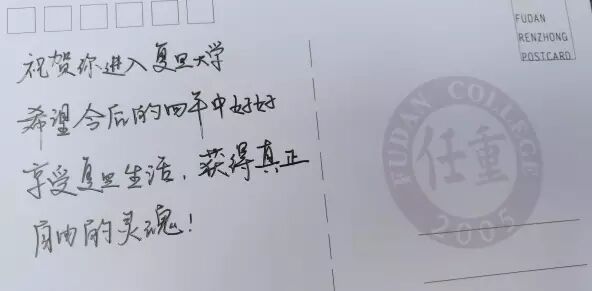 祝贺你进入复旦大学
希望今后的四年中好好
享受复旦生活，获得真正
自由的灵魂！
FUDAN
RENZHONG
POSTCARD
FUDAN COLLEGE
任重
2005